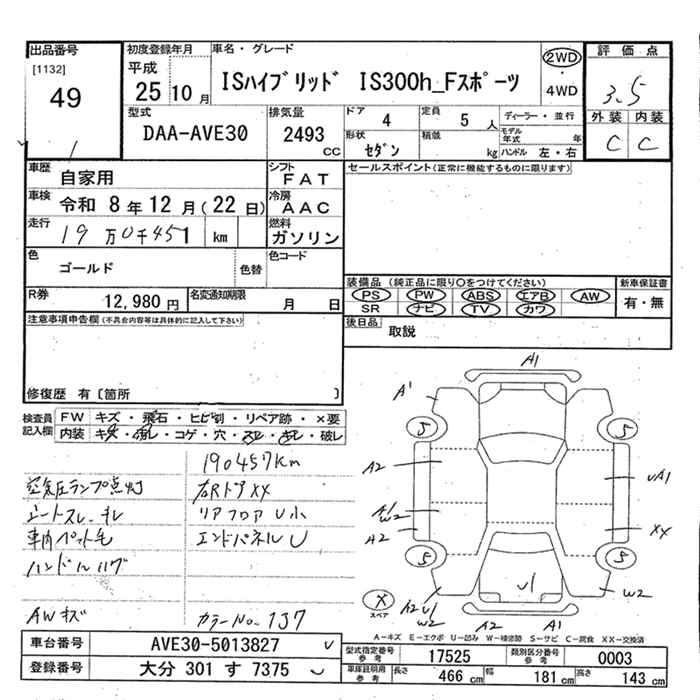 出品番号
[1132]
49
初度登録年月
平成
25 10 月
車名・グレード
ISハイブリッド IS300h_Fスポーツ
2WD
・
4WD
評価点
3.5
外装 内装
C C
型式
DAA-AVE30
排気量
2493
CC
ドア 4
定員 5 人
形状 セダン
積載 kg
ディーラー・並行
モデル年式 年
ハンドル 左・右
車歴
自家用
シフト
FAT
セールスポイント(正常に機能するものに限ります)
車検
令和 8年 12月(22日)
冷房
AAC
走行
19万0千451 km
燃料
ガソリン
色
ゴールド
色替
色コード
装備品 (純正品に限り○をつけてください)
PS PW ABS エアB AW
SR ナビ TV カワ
新車保証書
有・無
R券
12,980 円
名変通知期限
月 日
後日品 取説
注意事項申告欄(不具合内容等は具体的に記入して下さい)
修復歴 有〔箇所 〕
検査員
記入欄
FW キズ・飛石・ヒビ割・リペア跡・×要
内装 キズ・汚レ・コゲ・穴・スレ・キレ・破レ
190457km
空気圧ランプ点灯
右Rドア XX
シートスレ、キレ
リアフロア U小
車内ペット毛
エンドパネル U
ハンドルハゲ
AWキズ
カラーNo. 137
A1
A'
S
S
A2
UA1
A1
W2
A2
XX
S
S
X
スペア
A2 U1
W2
U1
W2
A2
A1
A-キズ E-エクボ U-凹ミ W-補修跡 S-サビ C-腐食 XX-交換済
車台番号
AVE30-5013827
登録番号
大分 301 す 7375
型式指定番号
参考
17525
類別区分番号
参考
0003
車庫証明用
参考
長さ
466 cm
幅
181 cm
高さ
143 cm